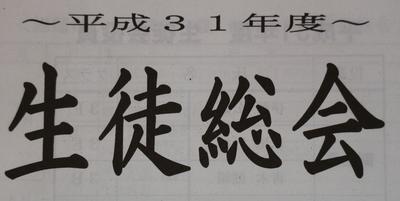 ～平成３１年度～
生徒総会